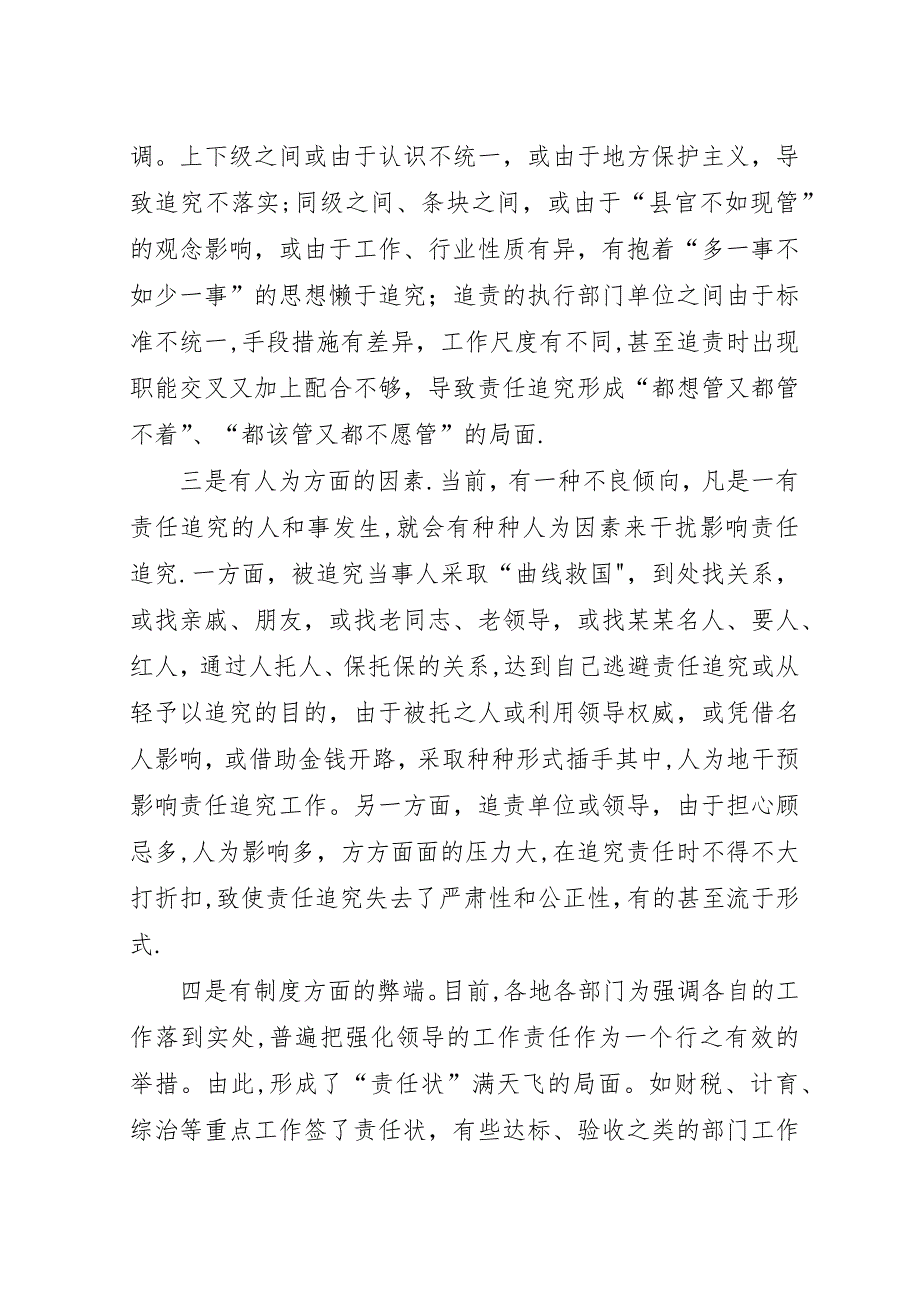 调。上下级之间或由于认识不统一，或由于地方保护主义，导
致追究不落实;同级之间、条块之间，或由于“县官不如现管”
的观念影响，或由于工作、行业性质有异，有抱着“多一事不
如少一事”的思想懒于追究；追责的执行部门单位之间由于标
准不统一,手段措施有差异，工作尺度有不同,甚至追责时出现
职能交叉又加上配合不够，导致责任追究形成“都想管又都管
不着”、“都该管又都不愿管”的局面.
三是有人为方面的因素.当前，有一种不良倾向，凡是一有
责任追究的人和事发生,就会有种种人为因素来干扰影响责任
追究.一方面，被追究当事人采取“曲线救国"，到处找关系，
或找亲戚、朋友，或找老同志、老领导，或找某某名人、要人、
红人，通过人托人、保托保的关系,达到自己逃避责任追究或从
轻予以追究的目的，由于被托之人或利用领导权威，或凭借名
人影响，或借助金钱开路，采取种种形式插手其中,人为地干预
影响责任追究工作。另一方面，追责单位或领导，由于担心顾
忌多,人为影响多，方方面面的压力大,在追究责任时不得不大
打折扣,致使责任追究失去了严肃性和公正性，有的甚至流于形
式.
四是有制度方面的弊端。目前,各地各部门为强调各自的工
作落到实处,普遍把强化领导的工作责任作为一个行之有效的
举措。由此,形成了“责任状”满天飞的局面。如财税、计育、
综治等重点工作签了责任状，有些达标、验收之类的部门工作